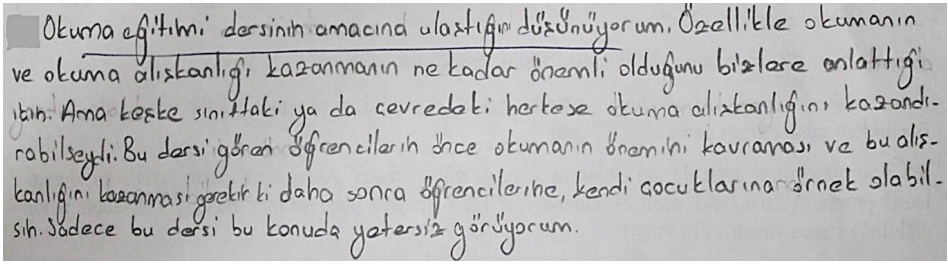 Okuma eğitimi dersinin amacına ulaştığını düşünüyorum. Özellikle okumanın
ve okuma alışkanlığı kazanmanın ne kadar önemli olduğunu bizlere anlattığı
için. Ama keşke sınıftaki ya da çevredeki herkese okuma alışkanlığını kazandı-
rabilseydi. Bu dersi gören öğrencilerin önce okumanın önemini kavraması ve bu alış-
kanlığını kazanması gerekir ki daha sonra öğrencilerine, kendi çocuklarına örnek olabil-
sin. Sadece bu dersi bu konuda yetersiz görüyorum.